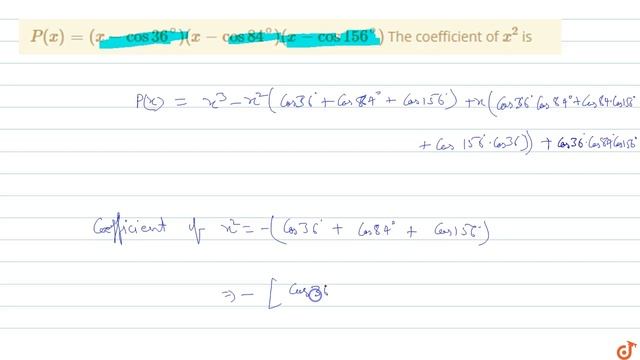 P(x) = (x − cos 36°)(x − cos 84°)(x − cos 156°) The coefficient of x² is
P(x) = x³ − x²(Cos36° + Cos 84° + Cos156°) + x(Cos36° Cos84° + Cos84·Cos156°
+ Cos 156°·Cos36)) + Cos36°·Cos84°Cos156°
Coefficient of x² = −(Cos36° + Cos84° + Cos156°)
⇒ − [ Cos36